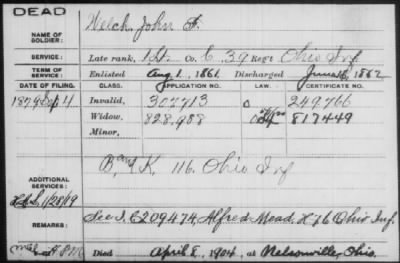 DEAD
NAME OF SOLDIER: Welch, John F.
SERVICE: Late rank, 1 Lt. Co. C, 39 Reg't Ohio Inf
TERM OF SERVICE: Enlisted Aug 1, 1861, Discharged June 16, 1862
DATE OF FILING. CLASS. APPLICATION NO. LAW. CERTIFICATE NO.
1879 Sep 4 Invalid, 307713 O 249766
Widow, 828,988 817449
Minor,
ADDITIONAL SERVICES: B and K, 116. Ohio Inf
1/28/19
REMARKS: See I. C 209474, Alfred Mead, H 76 Ohio Inf.
Died April 8, 1904, at Nelsonville, Ohio.